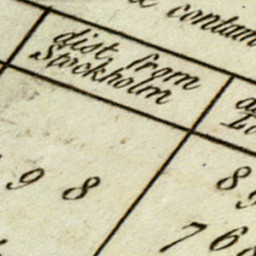 contain
dist from
Stockholm
9 8
8
7 6